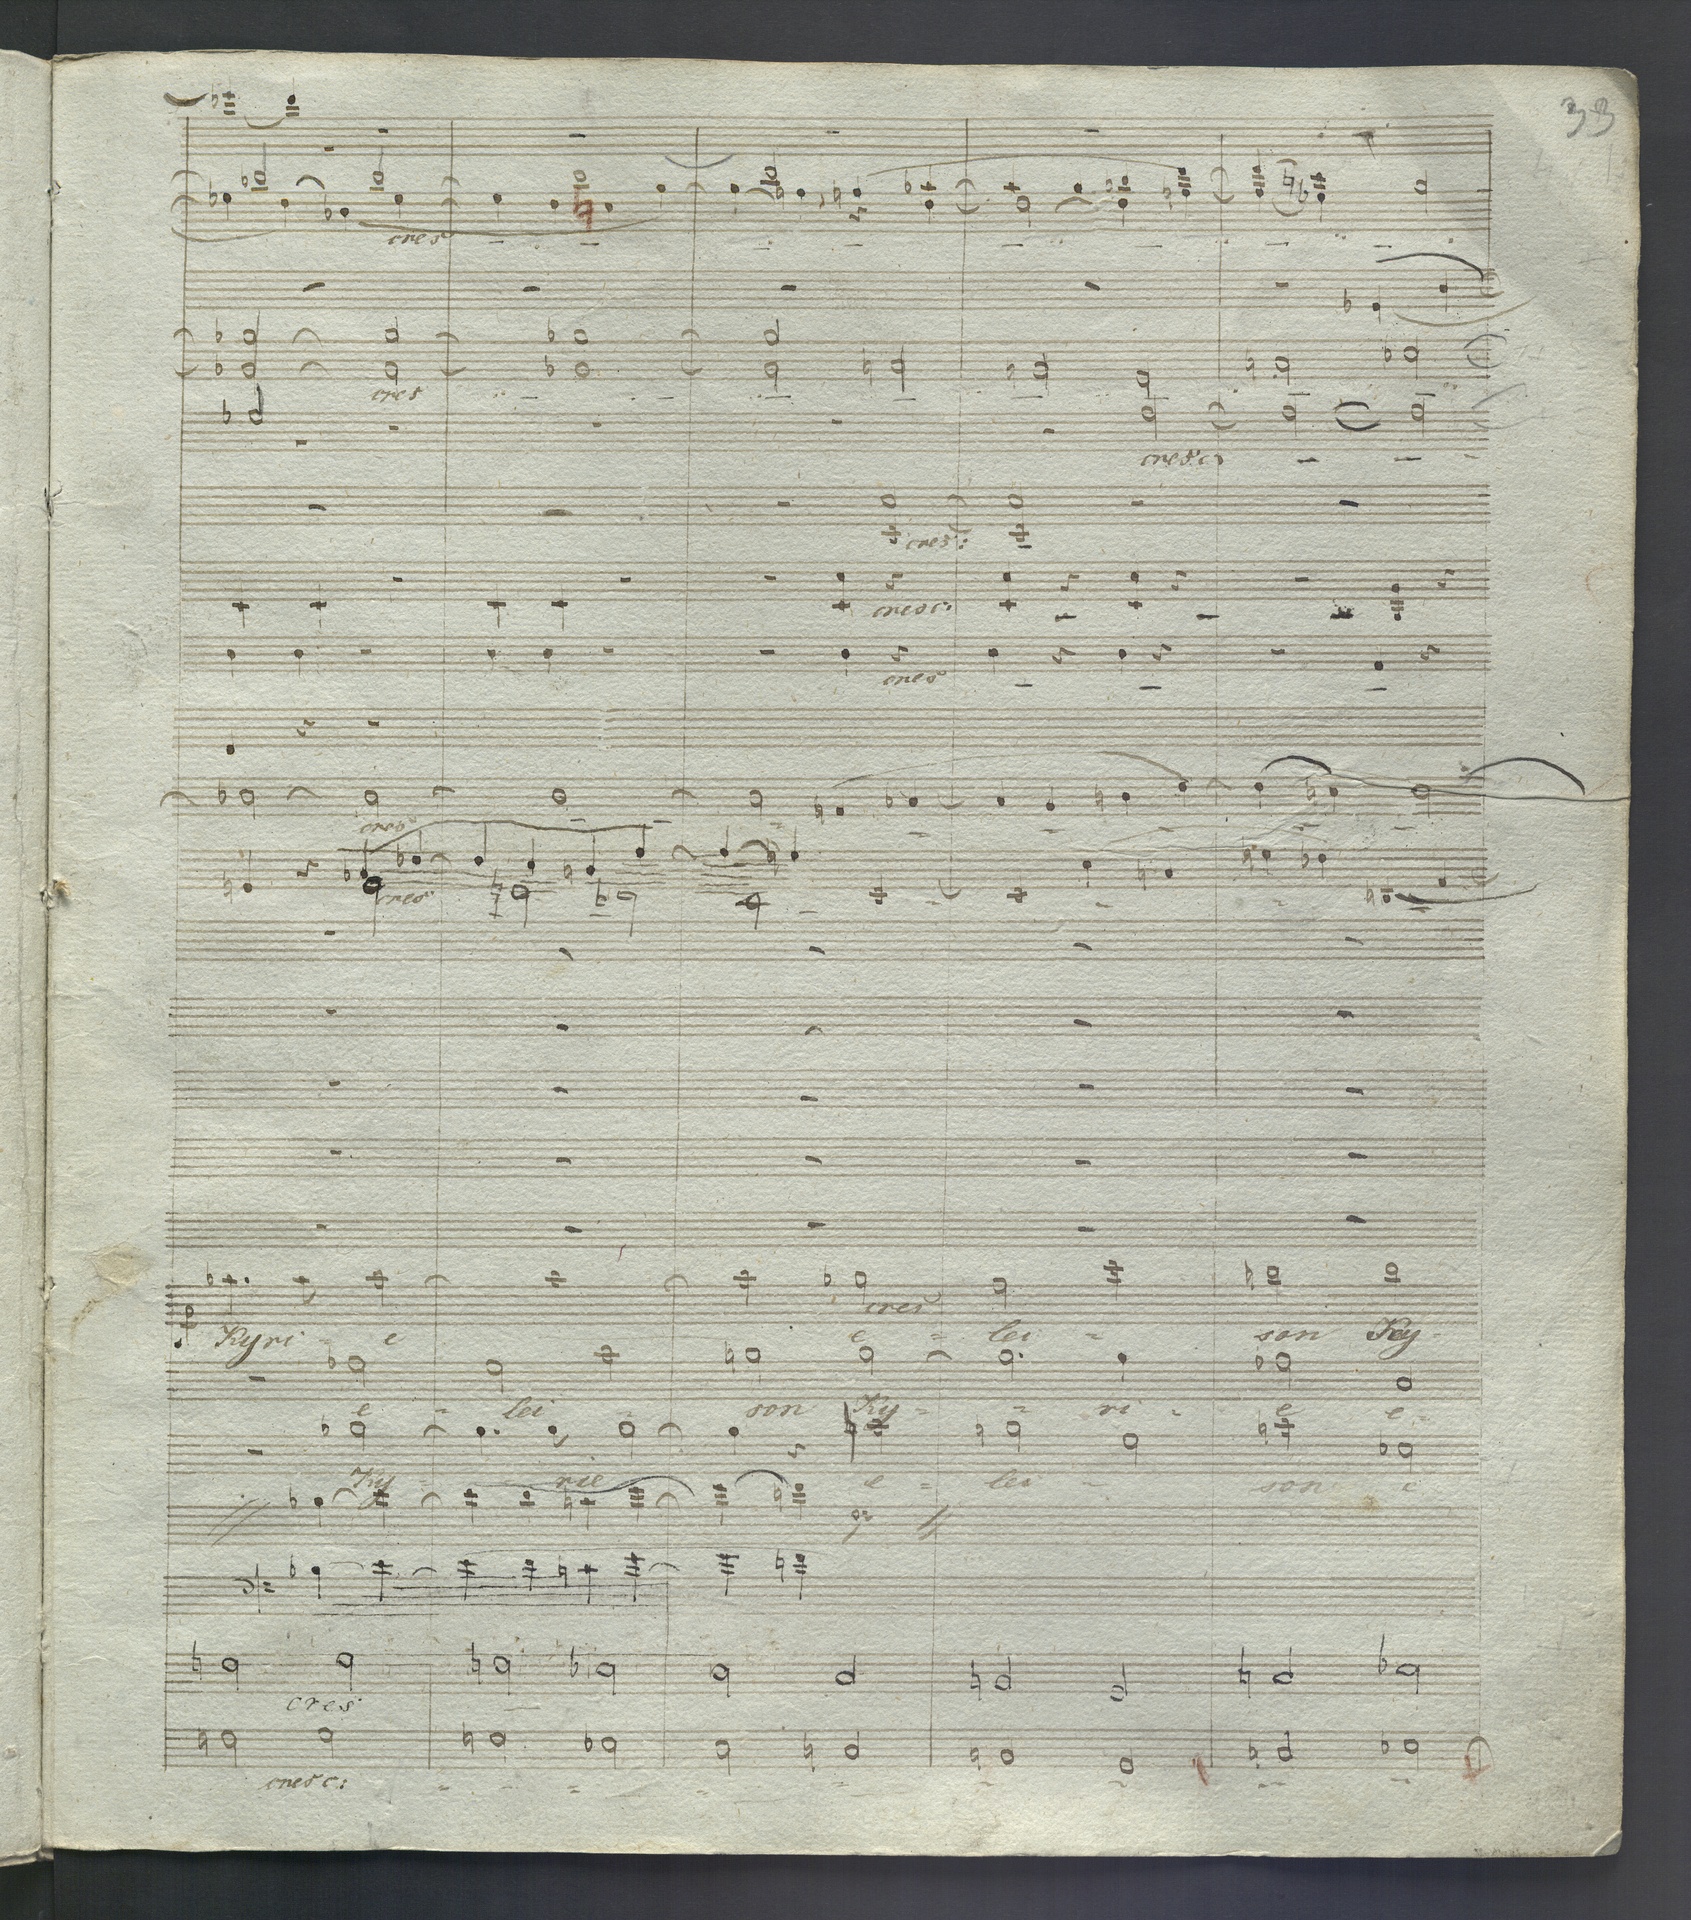 33
cres
cres
cresc
cres:
cresc:
cres
cres
cres
cres
Kyri - e e - lei - son Ky -
e - lei - son Ky - - ri - e e -
Ky - rie e - lei - son e
cres
cresc: